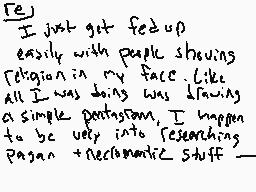 re)
I just get fed up
easily with people shoving
religion in my face. Like
all I was doing was drawing
a simple pentagram, I happen
to be very into researching
pagan + necromantic stuff —